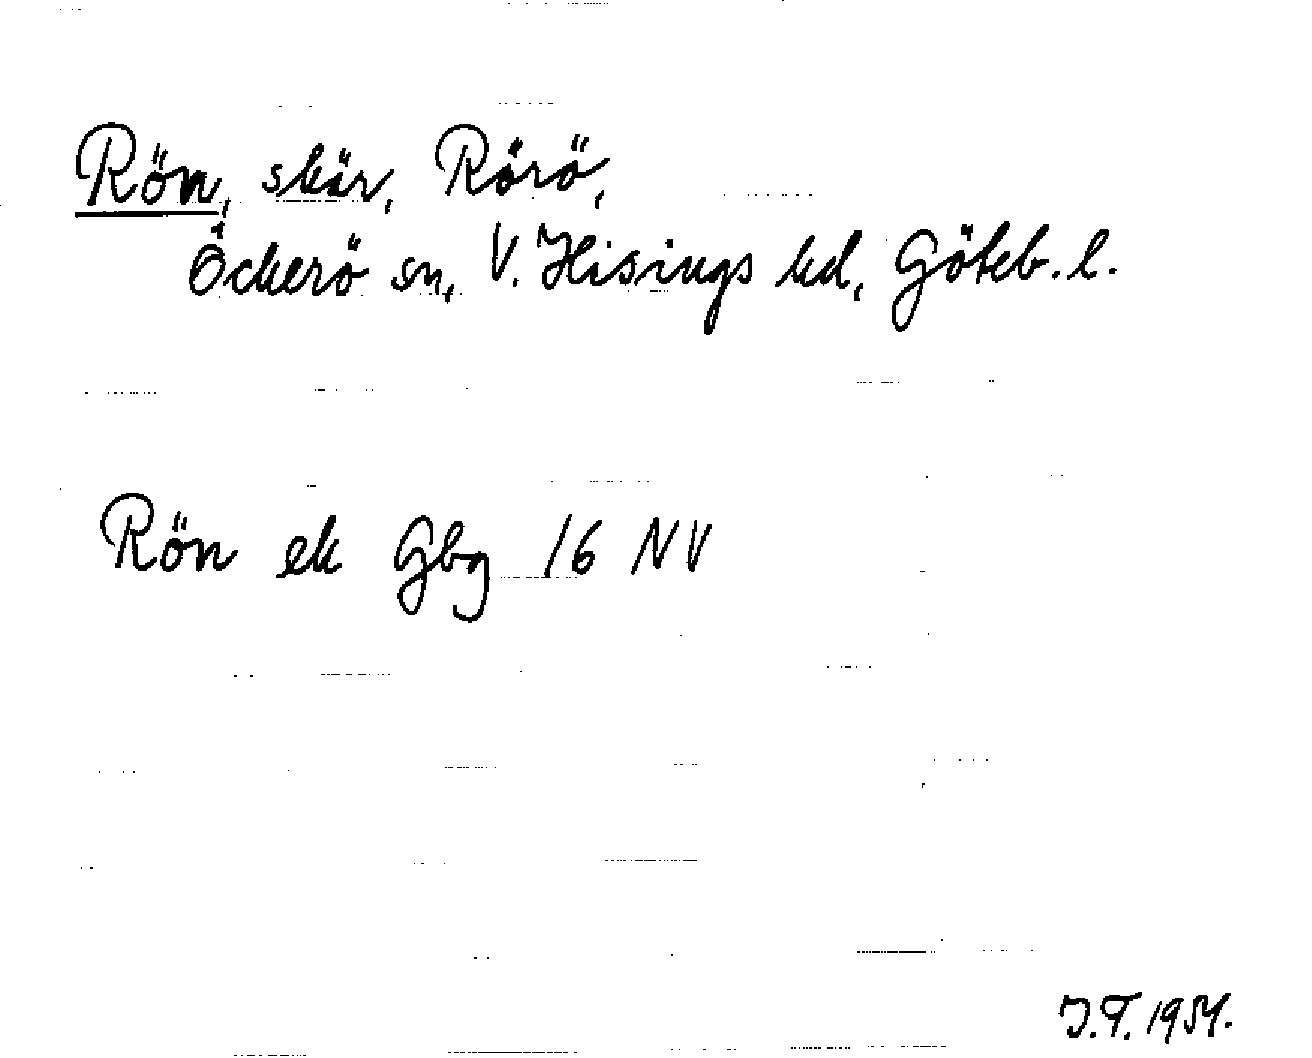 Rön, skär, Rörö,
Öckerö sn, V. Hisings hd, Göteb. l.
Rön ek Gbg 16 NV
J.T. 1954.